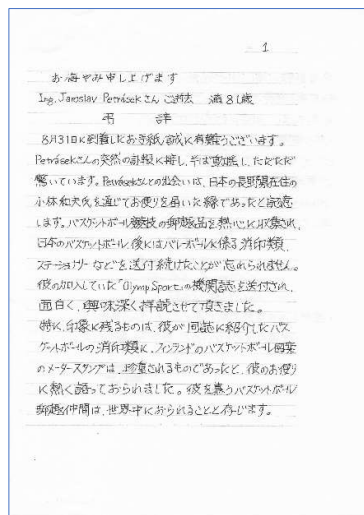 1
お悔やみ申し上げます
Ing. Jaroslav Petrásekさん ご逝去 満81歳
弔 詞
8月31日に到着したお手紙、誠に有難うございます。
Petrásekさんの突然の訃報に接し、ただただ
驚いています。Petrásekさんとの出会いは、日本の長野県在住の
小林和夫氏を通じてお便りを届いた縁であったと記憶
します。バスケットボール競技の郵趣品を熱心に収集され、
日本のバスケットボール、後にはバレーボールに係る消印類、
ステーショナリーなどを送付続けたことが忘れられません。
彼の加入していた「Olymp Sport」の機関誌を送付され、
面白く、興味深く拝読させて頂きました。
特に印象に残るものは、彼が同誌に紹介したバス
ケットボールの消印類に、フィンランドのバスケットボール図案
のメータースタンプは、珍重されるものであったと、彼のお便り
に熱く語っておられました。彼を慕うバスケットボール
郵趣仲間は、世界中におられることと存じます。